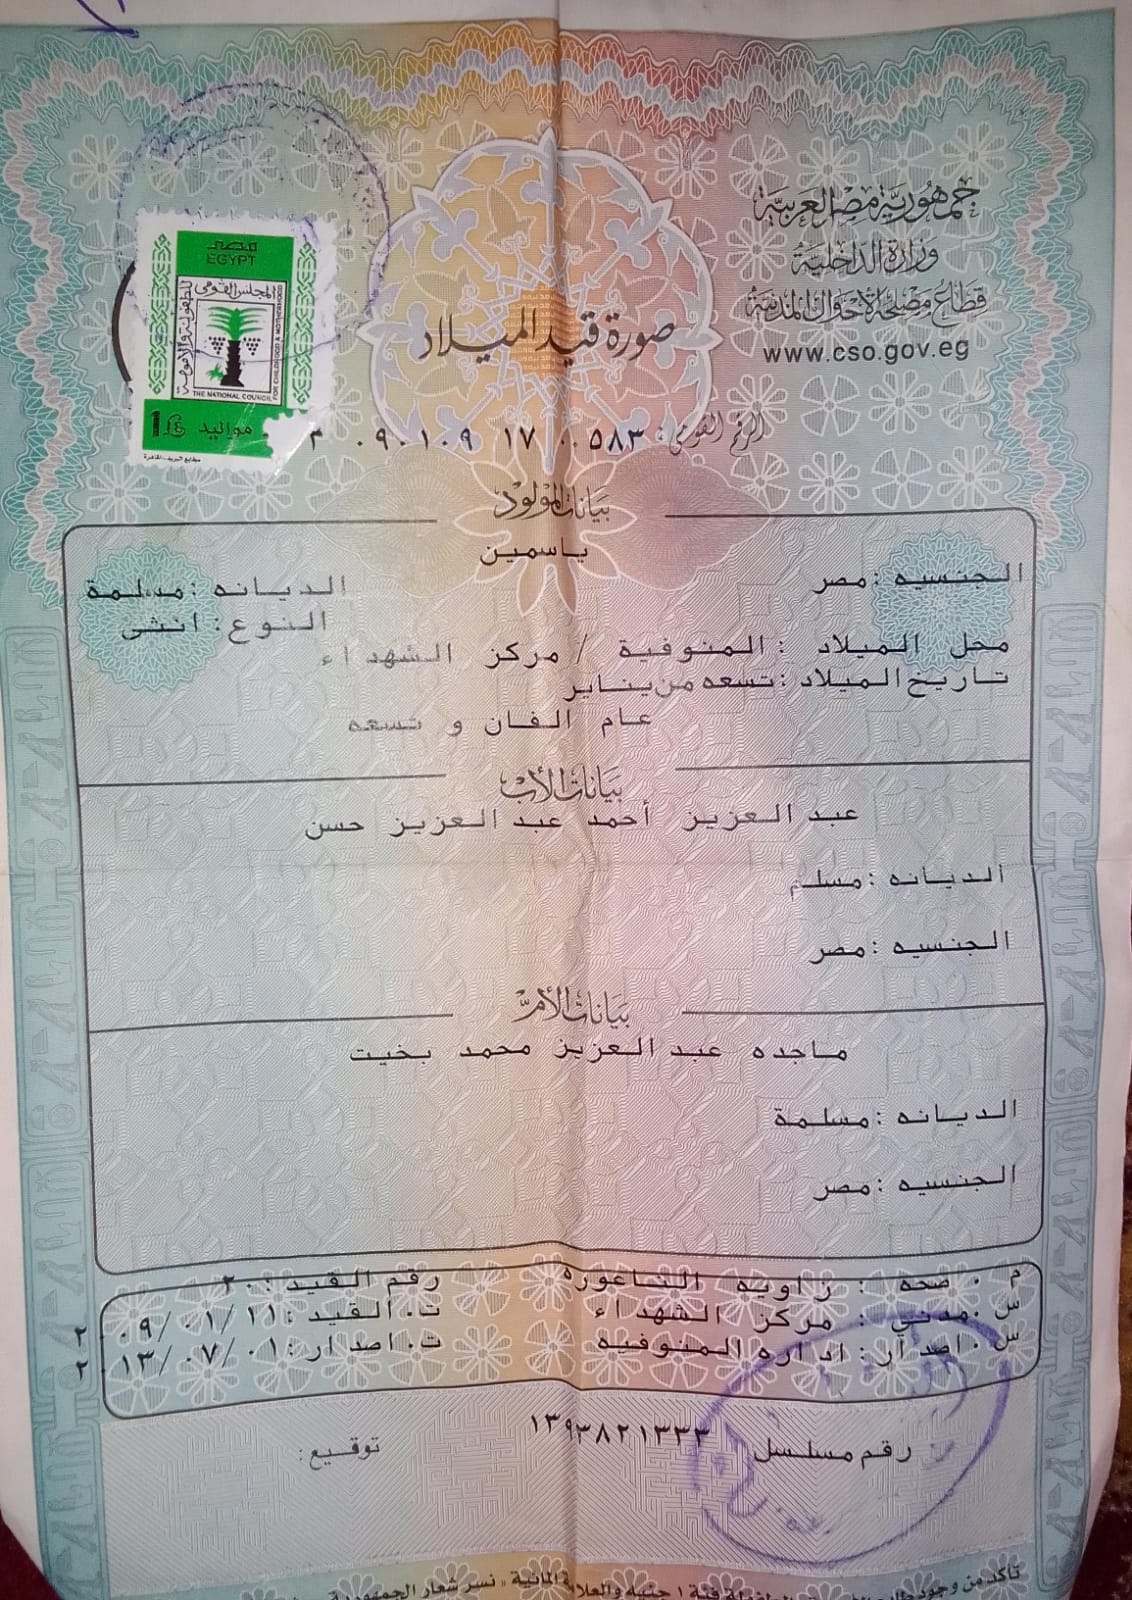 جمهورية مصر العربية
وزارة الداخلية
قطاع مصلحة الأحوال المدنية
www.cso.gov.eg
مصر
EGYPT
المجلس القومي
للطفولة والأمومة
THE NATIONAL COUNCIL
FOR CHILDHOOD & MOTHERHOOD
مواليد
مطابع البريد-القاهرة
صورة قيد الميلاد
الرقم القومي:
بيانات المولود
ياسمين
الجنسيه :مصر
الديانه :مسلمة
النوع: انثى
محل الميلاد : المنوفية / مركز الشهداء
تاريخ الميلاد :تسعه من يناير
عام الفان و تسعه
بيانات الأب
عبد العزيز أحمد عبد العزيز حسن
الديانه :مسلم
الجنسيه :مصر
بيانات الأم
ماجده عبد العزيز محمد بخيت
الديانه :مسلمة
الجنسيه :مصر
م . صحه : زاويه الناعورة رقم القيد :٢٠
س .مدني : مركز الشهداء ت. القيد :٢٠٠٩/٠١/١١
س .اصدار: اداره المنوفيه ت. اصدار :٢٠١٣/٠٧/٠١
رقم مسلسل
توقيع:
تأكد من وجود
فئة ١ جنيه والعلامة المائية « نسر شعار الجمهورية